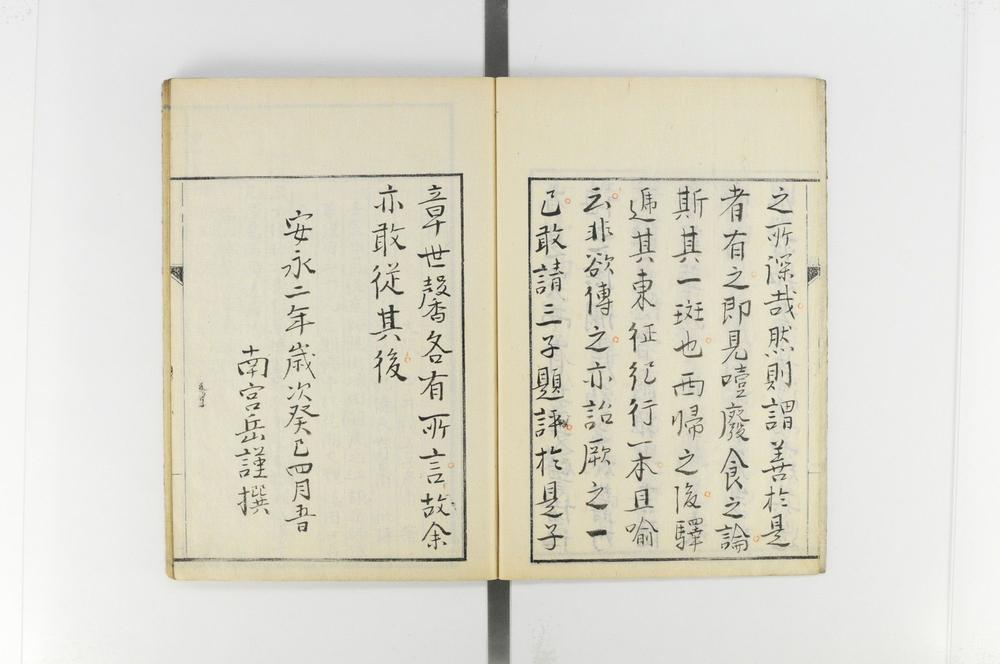 之所深哉然則謂善於是
者有之即見噎廢食之論
斯其一斑也西歸之後驛
遞其東征紀行一本且喻
云非欲傳之亦詒厥之一
已敢請三子題評於是子
章世馨各有所言故余
亦敢從其後
安永二年歲次癸巳四月
南宮岳謹撰